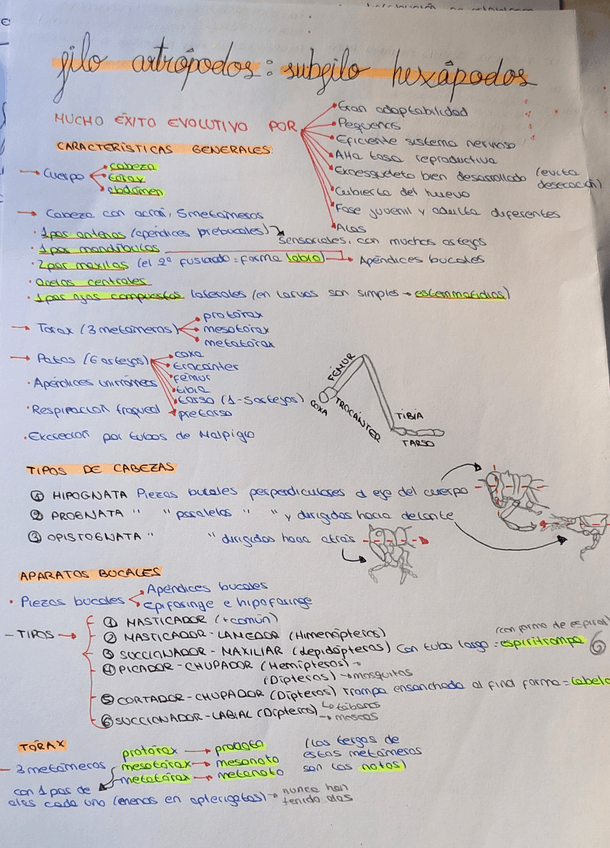 filo artrópodos: subfilo hexápodos
MUCHO ÉXITO EVOLUTIVO POR
Gran adaptabilidad
Pequeños
Eficiente sistema nervioso
Alta tasa reproductiva
Exoesqueleto bien desarrollado (evita desecación)
Cubierta del huevo
Fase juvenil y adulta diferentes
Alas
CARACTERÍSTICAS GENERALES
→ Cuerpo
cabeza
tórax
abdomen
→ Cabeza con acron, 5 metámeros
· 1 par antenas (apéndices prebucales) → sensoriales, con muchos artejos
· 1 par mandíbulas
· 2 par maxilas (el 2º fusiado = forma labio) → Apéndices bucales
· ocelos centrales
· 1 par ojos compuestos laterales (en larvas son simples → estemmatidios)
→ Tórax (3 metámeros)
protórax
mesotórax
metatórax
→ Patas (6 artejos)
coxa
trocánter
fémur
tibia
tarso (1-5 artejos)
pretarso
· Apéndices unirrámeos
· Respiración traqueal
· Excreción por tubos de Malpigio
FÉMUR
COXA
TROCÁNTER
TIBIA
TARSO
TIPOS DE CABEZAS
① HIPOGNATA Piezas bucales perpendiculares al eje del cuerpo
② PROGNATA " " paralelas " " y dirigidas hacia delante
③ OPISTOGNATA " " dirigidas hacia atrás
APARATOS BUCALES
· Piezas bucales
Apéndices bucales
Epifaringe e hipofaringe
— TIPOS →
① MASTICADOR (+común)
② MASTICADOR-LAMEDOR (Himenópteros)
(con forma de espiral)
③ SUCCIONADOR-MAXILAR (lepidópteros) con tubo largo = espiritrompa
④ PICADOR-CHUPADOR (Hemípteros)
(Dípteros) → mosquitos
⑤ CORTADOR-CHUPADOR (Dípteros) Trompa ensanchada al final forma = labela
↳ tábanos
⑥ SUCCIONADOR-LABIAL (Dípteros) → moscas
TÓRAX
— 3 metámeros
protórax → pronoto
mesotórax → mesonoto
metatórax → metanoto
(los tergos de estos metámeros son los notos)
con 1 par de alas cada uno (menos en apterigotas) → nunca han tenido alas